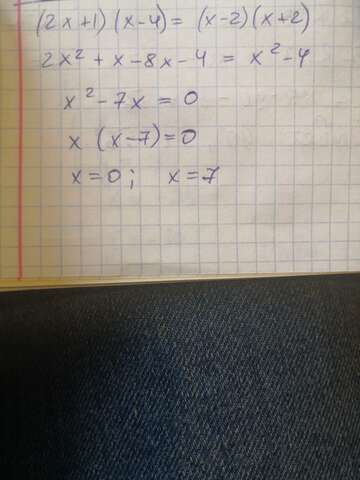 (2x+1)(x-4) = (x-2)(x+2)
2x² + x - 8x - 4 = x² - 4
x² - 7x = 0
x (x-7) = 0
x = 0; x = 7